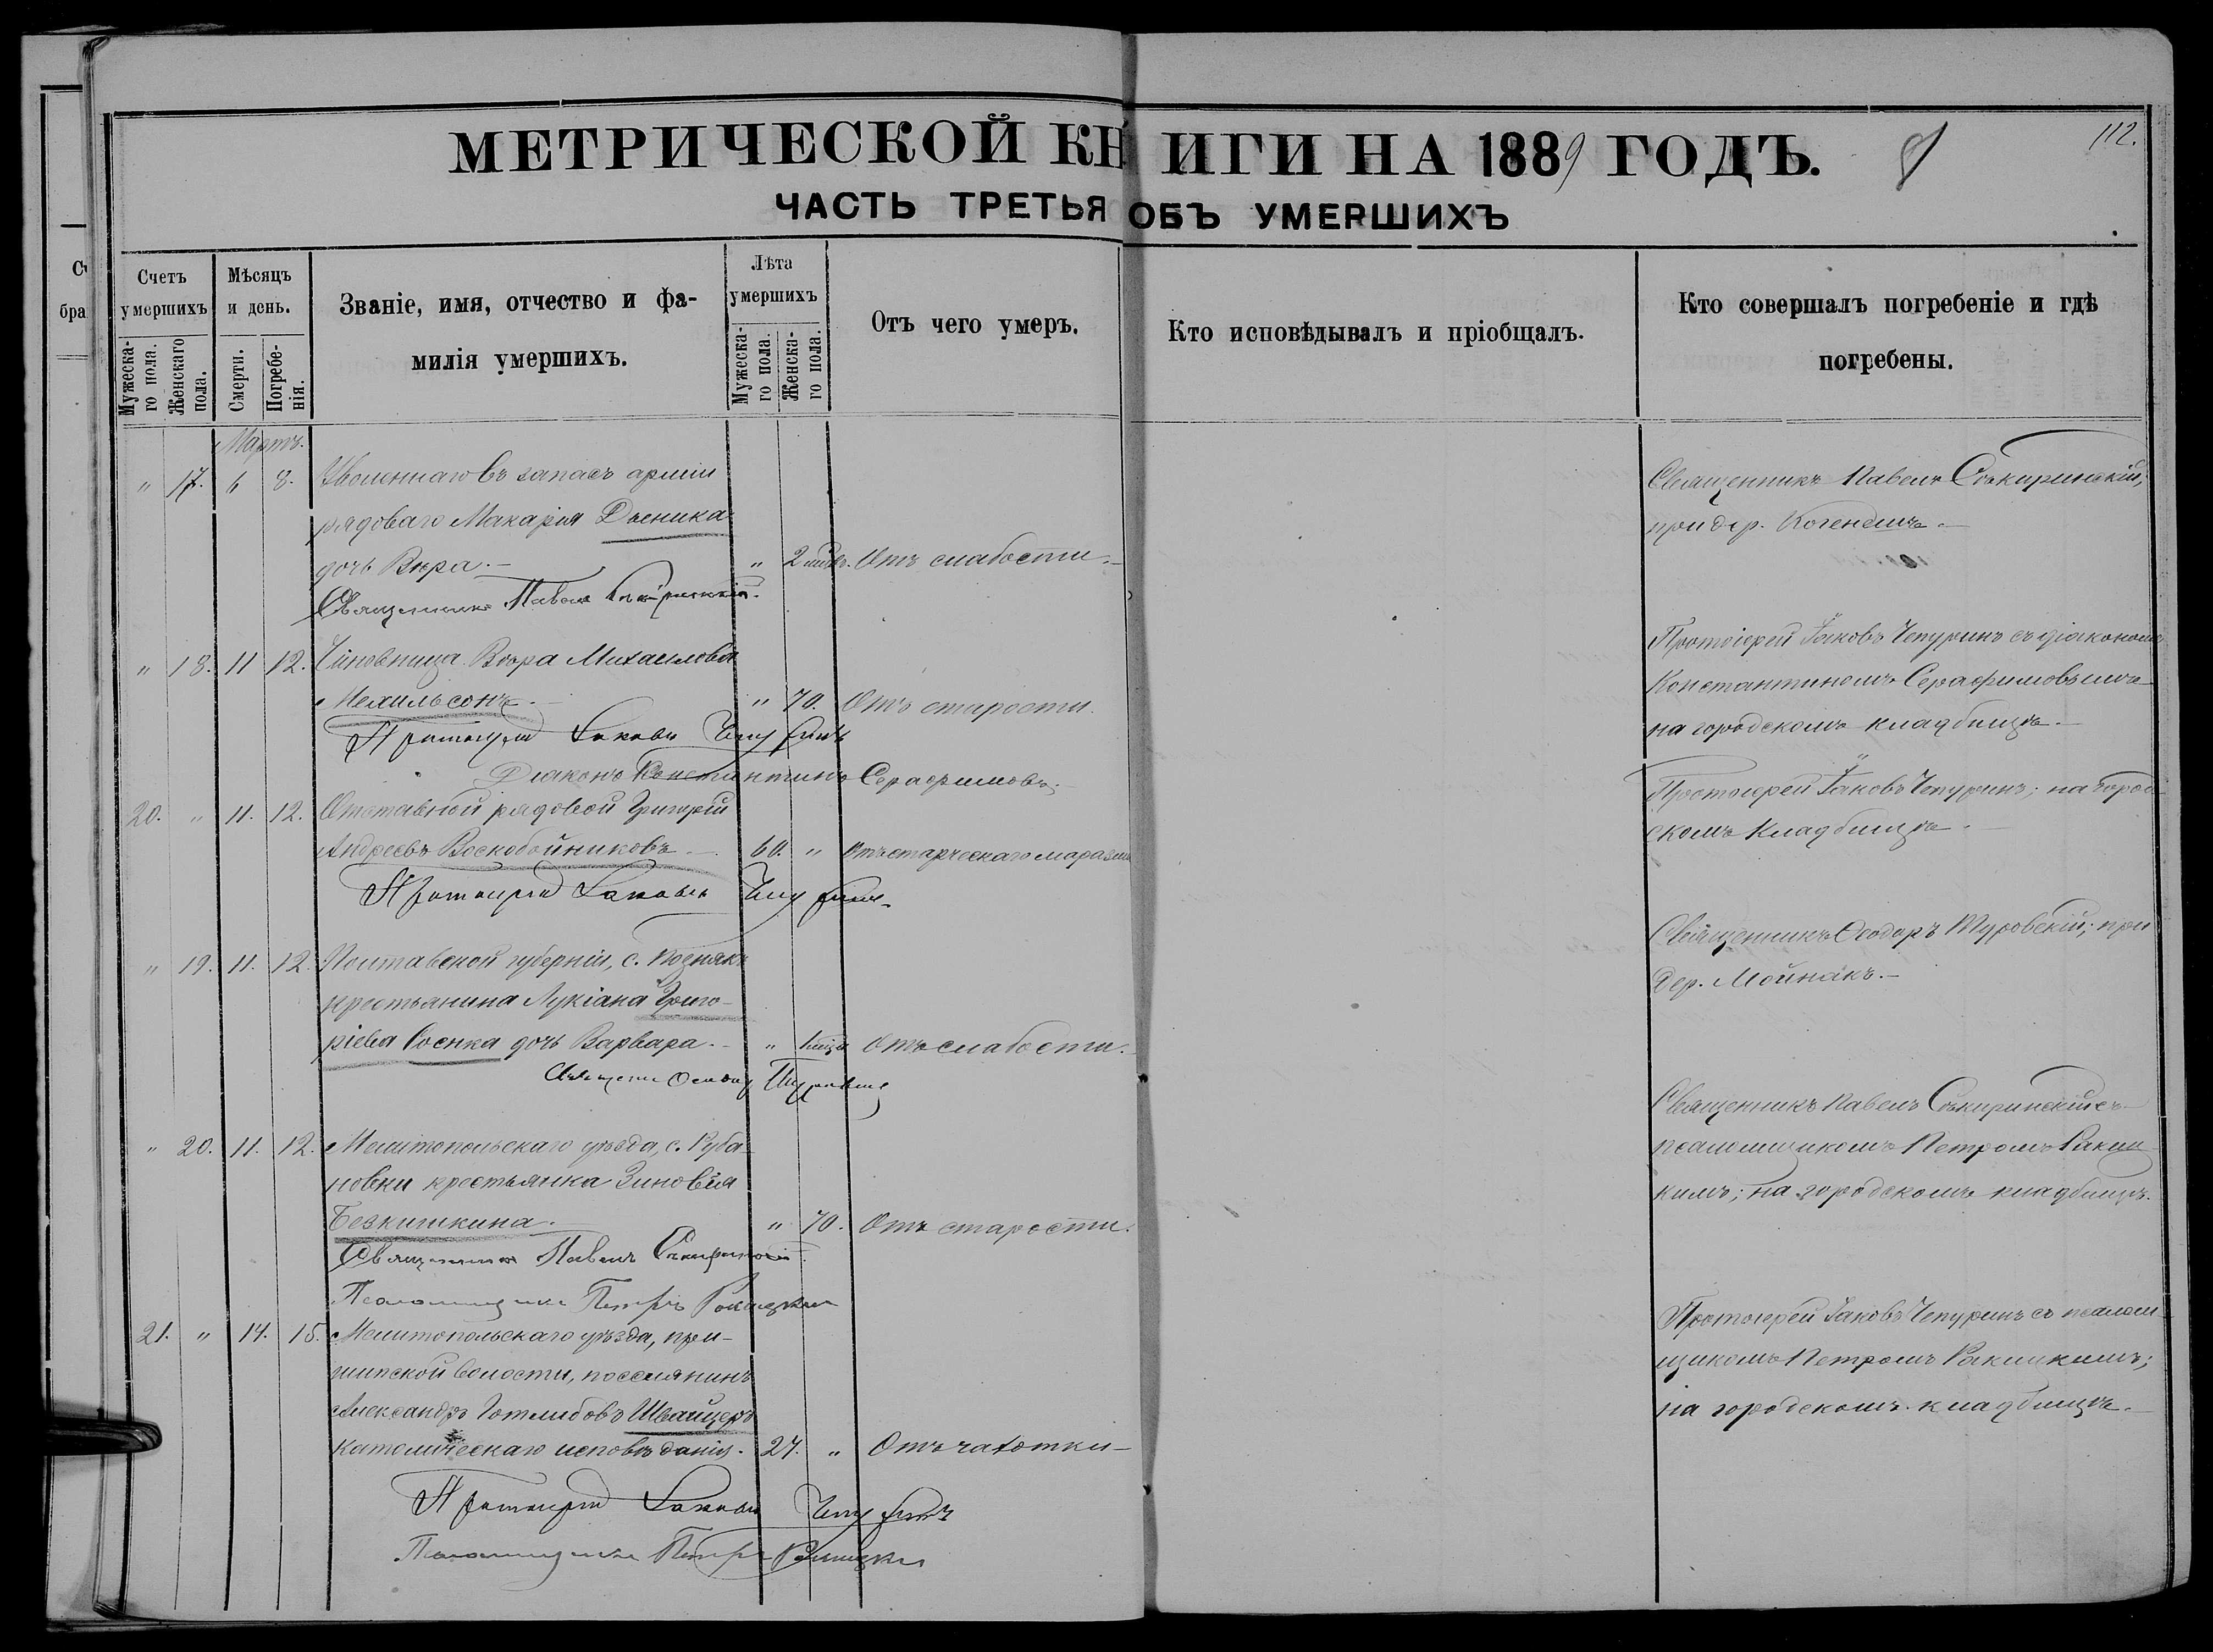 МЕТРИЧЕСКОЙ КНИГИ НА 1889 ГОДЪ.
112.
ЧАСТЬ ТРЕТЬЯ ОБЪ УМЕРШИХЪ
Счетъ умершихъ
Мужеска-го пола.
Женскаго пола.
Мѣсяцъ и день.
Смерти.
Погребе-нія.
Званіе, имя, отчество и фа-
милія умершихъ.
Лѣта умершихъ
Мужеска-го пола.
Женска-го пола.
Отъ чего умеръ.
Кто исповѣдывалъ и пріобщалъ.
Кто совершалъ погребеніе и гдѣ
погребены.
Мартъ.
" 17. 6 8. Уволеннаго въ запасъ арміи
рядоваго Макарія
дочь Вѣра.- " 2 Отъ слабости.-
Священникъ Павелъ Сѣкиринскій.
Священникъ Павелъ Сѣкиринскій;
при дер.
" 18. 11 12. Чиновница Вѣра Михаилова
Мехильсонъ.- " 70. Отъ старости.
Протоіерей Іаковъ Чепуринъ
Діаконъ Константинъ Серафимовъ.
Протоіерей Іаковъ Чепуринъ съ діакономъ
Константиномъ Серафимовымъ
на городскомъ кладбищѣ.-
20. " 11. 12. Отставной рядовой Григорій
Андреевъ Воскобойниковъ.- 60. " Отъ старческаго маразма
Протоіерей Іаковъ Чепуринъ
Протоіерей Іаковъ Чепуринъ; на город-
скомъ кладбищѣ.
" 19. 11. 12. Полтавской губерніи, с.
крестьянина Лукіана Григо-
ріева Сосика дочь Варвара.- " Отъ слабости.
Туровскій
Священникъ Ѳеодоръ Туровскій; при
дер. Мойнакъ.-
" 20. 11. 12. Мелитопольскаго уѣзда, с. Руба-
новки крестьянка Зиновія
Безкишкина. " 70. Отъ старости.
Священникъ Павелъ Сѣкиринскій
Псаломщикъ Петръ Ракицкій
Священникъ Павелъ Сѣкиринскій съ
псаломщикомъ Петромъ Ракиц-
кимъ; на городскомъ кладбищѣ.
21. " 14. 15. Мелитопольскаго уѣзда, при-
шипской волости, поселянинъ
Александръ Готлибовъ Швайцеръ
католическаго исповѣданія. 27. " Отъ чахотки-
Протоіерей Іаковъ Чепуринъ
Псаломщикъ Петръ Ракицкій
Протоіерей Іаковъ Чепуринъ съ псалом-
щикомъ Петромъ Ракицкимъ;
на городскомъ кладбищѣ.-